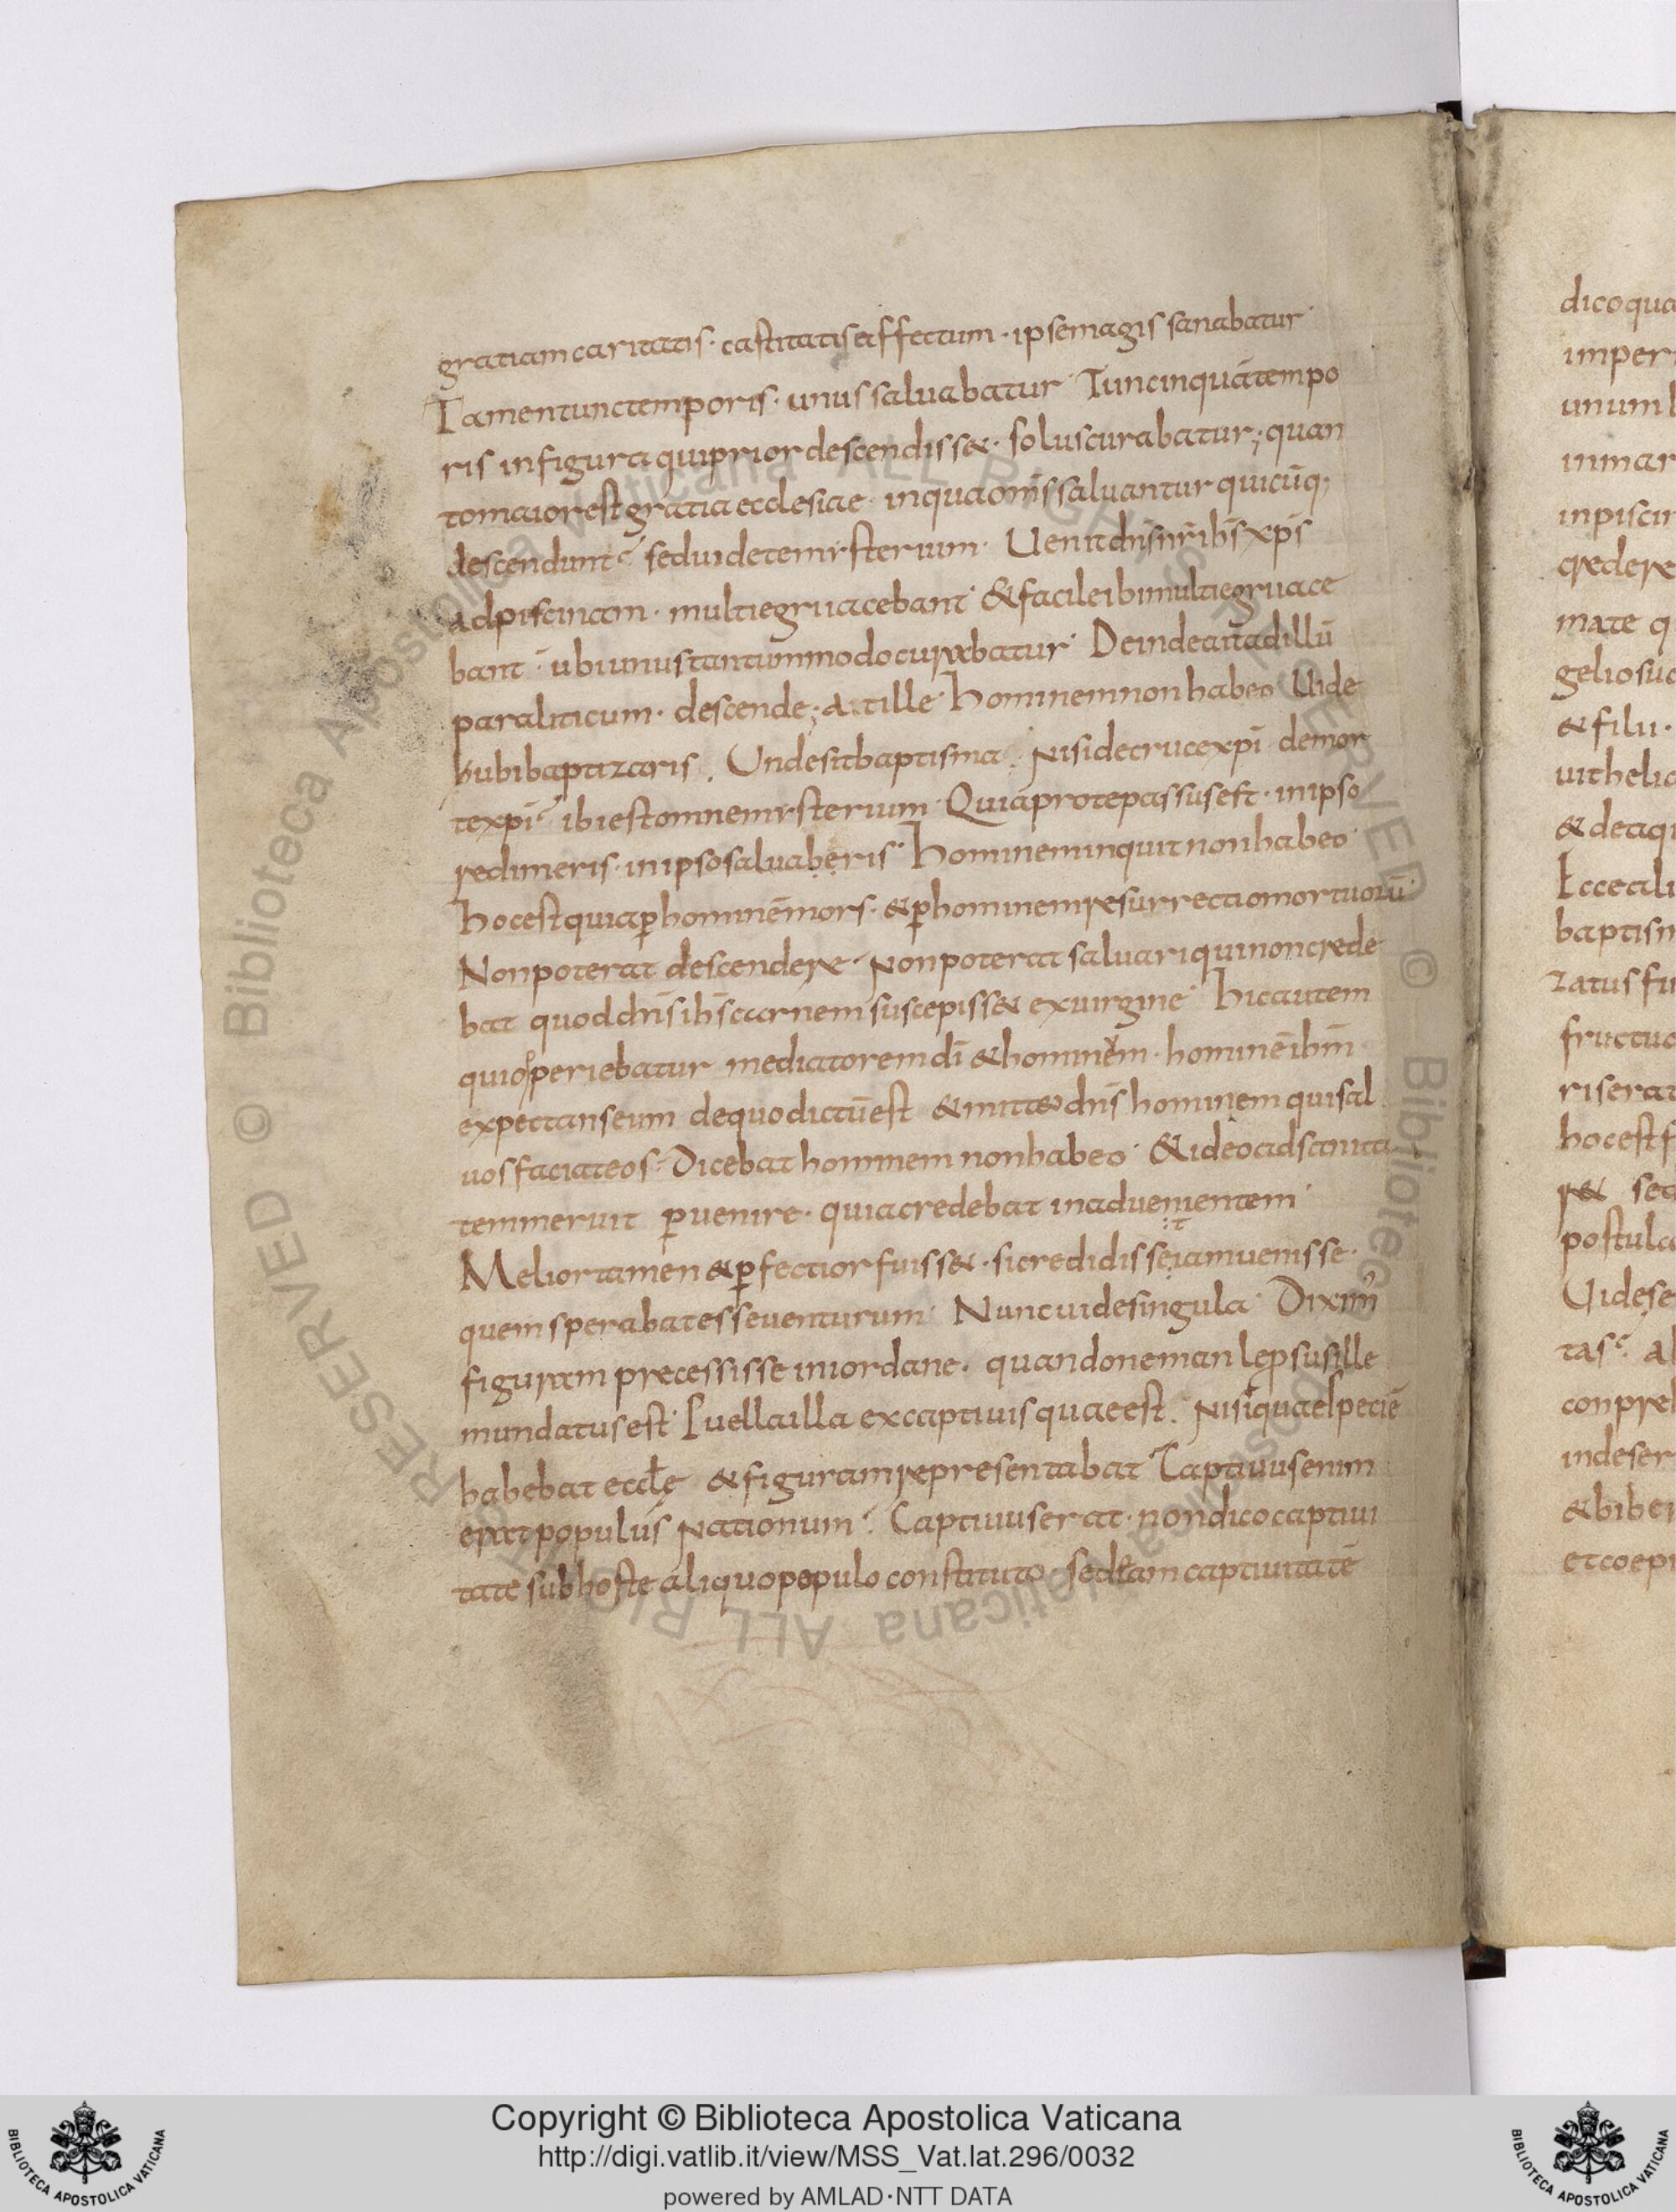 gratiam caritatis · castitatis effectum · ipse magis sanabatur
Tamen tunc temporis · unus saluabatur Tunc inquā tempo
ris in figura qui prior descendiss& · solus curabatur ; quan
to maior est gratia ecclesiae · in qua om̄s saluantur quicūq;
descendunt sed uide temysterium · Uenit dn̄s nr̄ ih̄s xp̄s
ad piscinam · multi egri iacebant & facile ibi multi egri iace
bant · ubi unus tantummodo curabatur Deinde ait ad illū
paraliticum · descende ; at ille hominem non habeo Uide
ubi baptizaris . Unde sit baptisma . Nisi de cruce xp̄i de mor
te xp̄i ibi est omne mysterium · Quia pro te passus est · in ipso
redimeris · in ipso saluaberis Hominem inquit non habeo
hoc est quia p̄ hominē mors · & p̄ hominem resurrectio mortuorū
Non poterat descendere · Non poterat saluari qui non crede
bat quod dn̄s ih̄s carnem suscepiss& ex uirgine Hic autem
qui operiebatur mediatorem dī & hominem · hominē ih̄m
expectans eum de quo dictū est & mitt& dn̄s hominem qui sal
uos faciat eos · Dicebat hominem non habeo & ideo ad sanita
tem meruit p̄uenire · quia credebat in aduenientem
Melior tamen & p̄fectior fuiss& · si credidisset iam uenisse ·
quem sperabat esse uenturum Nunc uide singula Diximꝰ
figuram precessisse in iordane · quando neman leprosus ille
mundatus est Puella illa ex captiuis quae est . Nisi quae specię
habebat eccl̄ę & figuram representabat Captiuus enim
erat populus Nationum Captiuus erat · non dico captiui
tate sub hoste aliquo populo constituto · sed eam captiuitatē
dico qua
imper
unum
in mar
in pisci
credere
mate q
gelio suo
& filii ·
uit helia
& de aqu
Ecce ali
baptism
zatus fu
fructuo
riserat
hoc est f
r& sed
postula
Uide se
tas al
conpreh
inde ser
& biber
et coepi
Copyright © Biblioteca Apostolica Vaticana
http://digi.vatlib.it/view/MSS_Vat.lat.296/0032
powered by AMLAD·NTT DATA
BIBLIOTECA APOSTOLICA VATICANA
BIBLIOTECA APOSTOLICA VATICANA